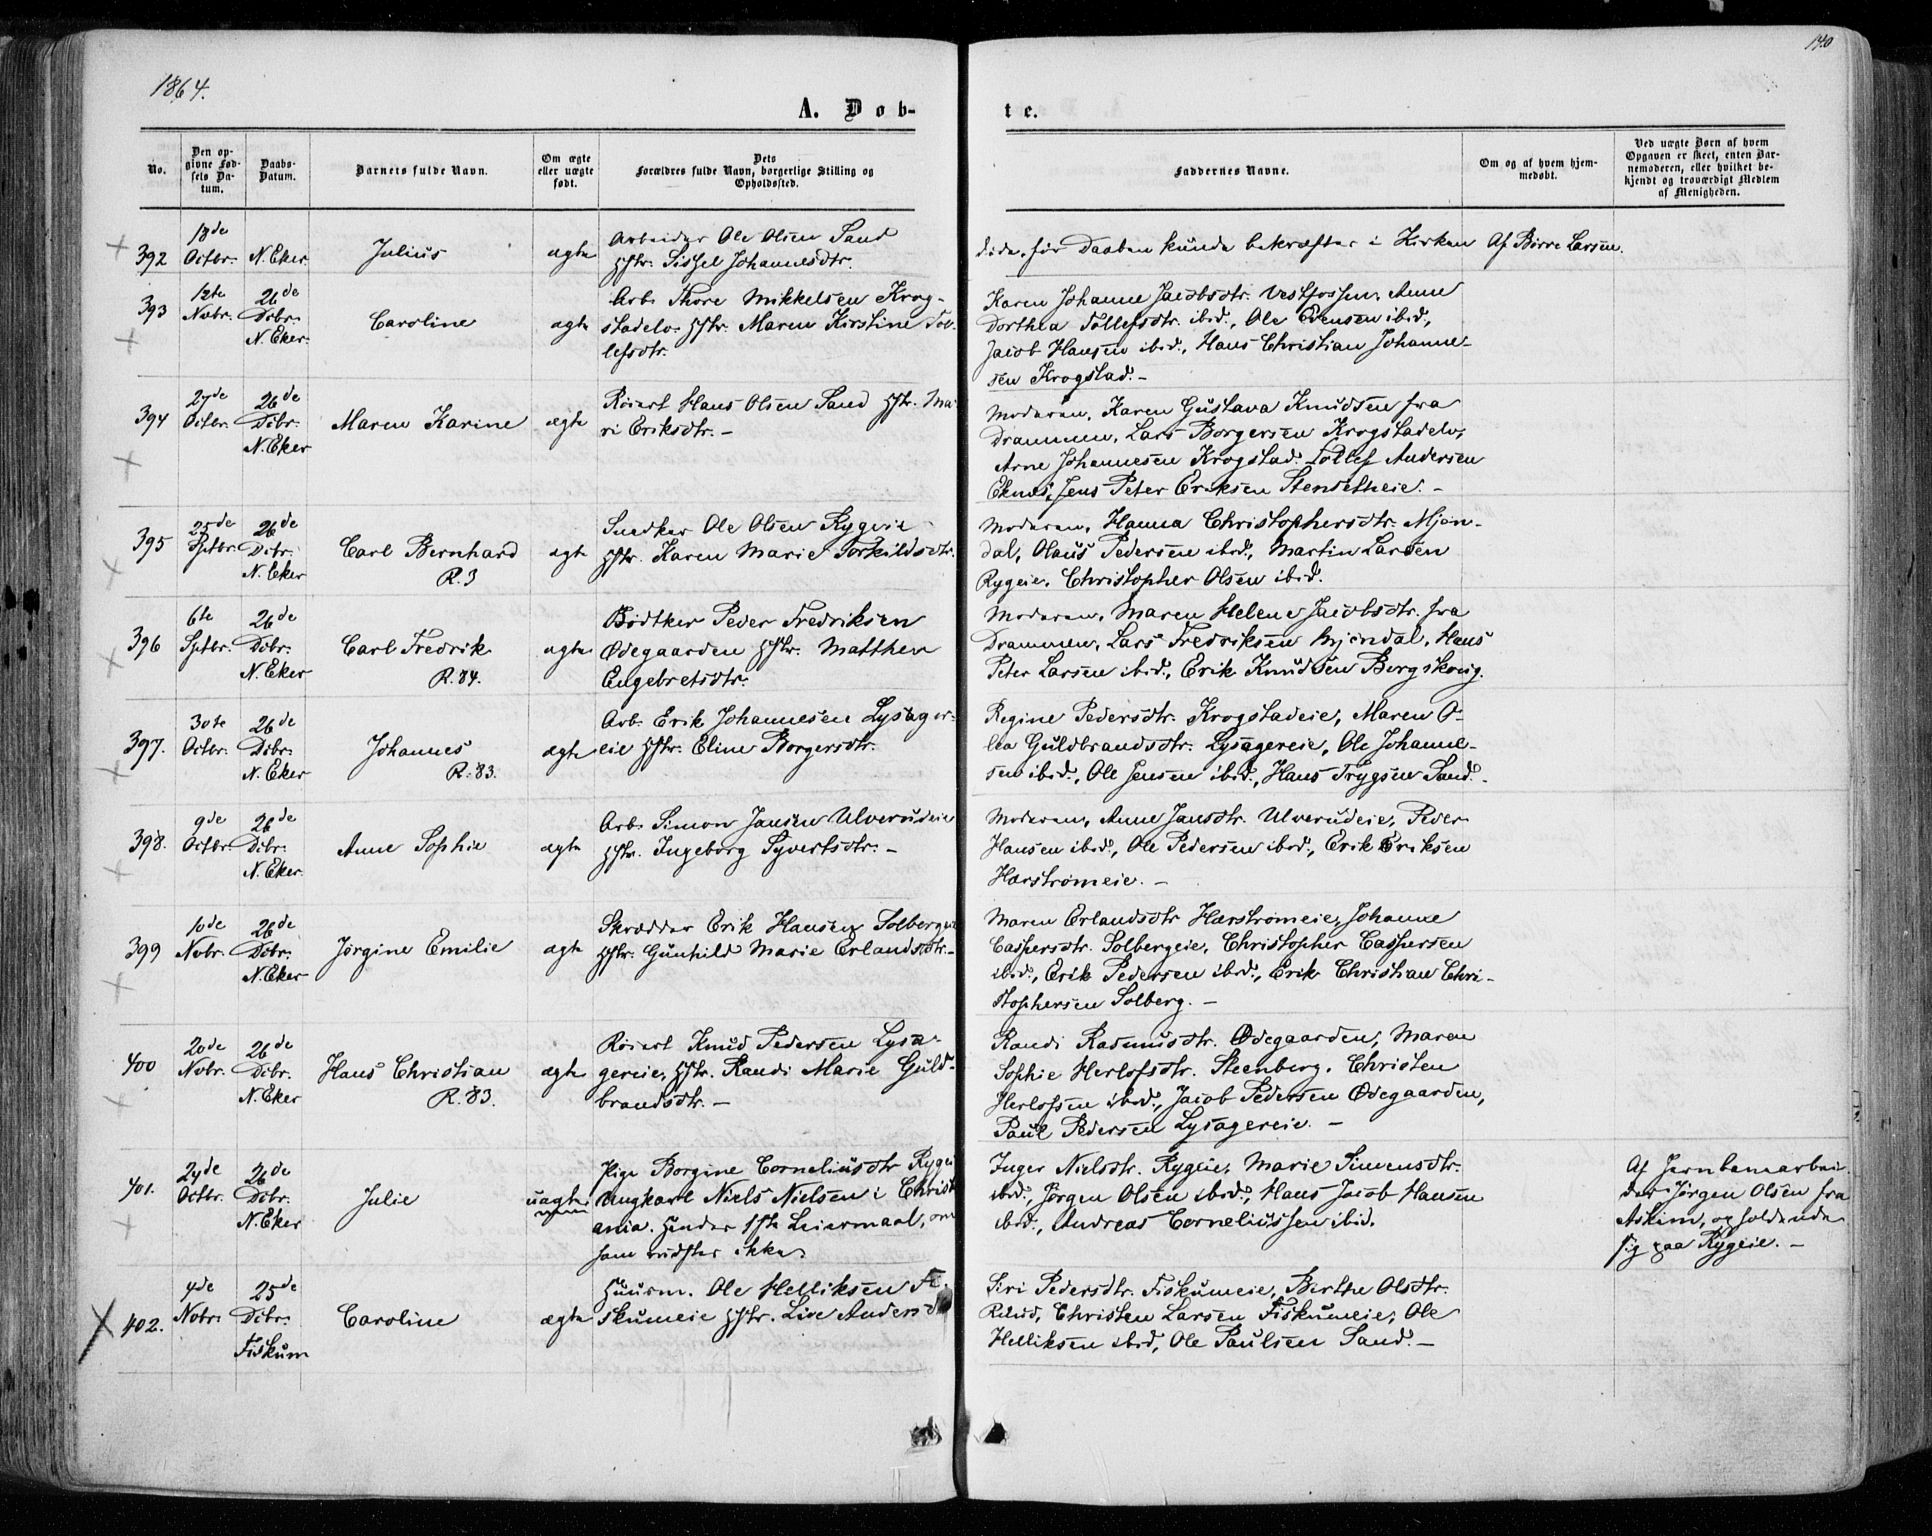 1864.
140
A. Døb-
te.
No.
Den op-
givne Fød-
sels Da-
tum.
Daabs-
Datum.
Barnets fulde Navn.
Om ægte
eller uægte
født.
Dets
Forældres fulde Navn, borgerlige Stilling og
Opholdssted.
Faddernes Navne.
Om og af hvem hjem-
medøbt.
Ved uægte Børn af hvem
Opgaven er skeet, enten Bar-
nemoderen, eller hvilket be-
kjendt og troværdigt Medlem
af Menigheden.
392
18de
Octbr.
N. Eker
Julius
ægte
Arbeider Ole Olsen Sand
Hstr. Sissel Johannesdtr.
døde før Daaben kunde bekræftes i Kirken
Af Børre Larsen.
393
12te
Novbr.
26de
Dcbr.
N. Eker
Caroline
ægte
Arb. Thore Mikkelsen Krog-
stadelv. Hstr. Maren Kirstine Tol-
lefsdtr.
Karen Johanne Jacobsdtr. Vestfossen, Anne
Dorthea Tollefsdtr. ibid., Ole Evensen ibid.,
Jacob Hansen ibid., Hans Christian Johanne-
sen Krogstad. -
394
27de
Octbr.
26de
Dcbr.
N. Eker
Maren Karine
ægte
Røiert Hans Olsen Sand Hstr. Ma-
ri Eriksdtr. -
Moderen, Karen Gustava Knudsen fra
Drammen, Lars Borgersen Krogstadelv,
Arne Johannesen Krogstad. Tollef Andersen
Eknes, Jens Peter Eriksen Stensetheie. -
395
25de
Sptbr.
26de
Dcbr.
N. Eker
Carl Bernhard
R. 3
ægte
Snedker Ole Olsen Rygeie
Hstr. Karen Marie Torkildsdtr.
Moderen, Hanna Christophersdtr. Mjøn-
dal, Olaus Pedersen ibid., Martin Larsen
Rygeie, Christopher Olsen ibid.
396
6te
Sptbr.
26de
Dcbr.
N. Eker
Carl Fredrik
R. 84.
ægte
Bødtker Peder Fredriksen
Ødegaarden Hstr. Matthea
Engebretsdtr.
Moderen, Maren Helene Jacobsdtr. fra
Drammen, Lars Fredriksen Mjøndal, Hans
Peter Larsen ibid., Erik Knudsen Borgskoug.
397.
30te
Octbr.
26de
Dcbr.
N. Eker
Johannes
R. 83.
ægte
Arb. Erik Johannesen Lysager-
eie Hstr. Eline Borgersdtr.
Regine Pedersdtr. Krogstadeie, Maren O-
lea Guldbrandsdtr. Lysagereie, Ole Johanne-
sen ibid., Ole Jensen ibid., Hans Trygsen Sand. -
398.
9de
Octbr.
26de
Dcbr.
N. Eker
Anne Sophie
ægte
Arb. Simon Jansen Ulverudeie
Hstr. Ingeborg Syvertsdtr. -
Moderen, Anne Jansdtr. Ulverudeie, Peder
Hansen ibid., Ole Pedersen ibid., Erik Eriksen
Hærstrømeie. -
399
10de
Novbr.
26de
Dcbr.
N. Eker
Jørgine Emilie
ægte
Skrædder Erik Hansen Solbergeie
Hstr. Gunhild Marie Erlandsdtr. -
Maren Erlandsdtr Hærstrømeie, Johanne
Caspersdtr. Solbergeie, Christopher Caspersen
ibid., Erik Pedersen ibid., Erik Christian Chri-
stophersen Solberg. -
400
20de
Novbr.
26de
Dcbr.
N. Eker
Hans Christian
R. 83.
ægte
Røiert Knud Pedersen Lysa-
gereie, Hstr. Randi Marie Guld-
brandsdtr. -
Randi Rasmusdtr. Ødegaarden, Maren
Sophie Herlofsdtr. Steenberg, Christen
Herlofsen ibid., Jacob Pedersen Ødegaarden,
Paul Pedersen Lysagereie. -
401.
24de
Octbr.
26de
Dcbr.
N. Eker
Julie
uægte
Pige Borgine Corneliusdtr Rygeie
Ungkarl Niels Nielsen i Christi-
ania. Hendes 1ste Leiermaal, om
hans vidstes ikke.
Inger Nielsdtr. Rygeie, Marie Simensdtr.
ibid., Jørgen Olsen ibid., Hans Jacob Hansen
ibid., Andreas Corneliussen ibid.
Af Jernbanearbei-
der Jørgen Olsen fra
Askim, opholdende
sig paa Rygeie. -
402.
4de
Novbr.
25de
Dcbr.
Fiskum
Caroline
ægte
Huusm. Ole Helliksen Fi-
skumeie Hstr. Live Andersdtr.
Siri Pedersdtr. Fiskumeie, Berthe Olsdtr.
Rulud, Christen Larsen Fiskumeie, Ole
Helliksen ibid, Ole Paulsen Sand. -